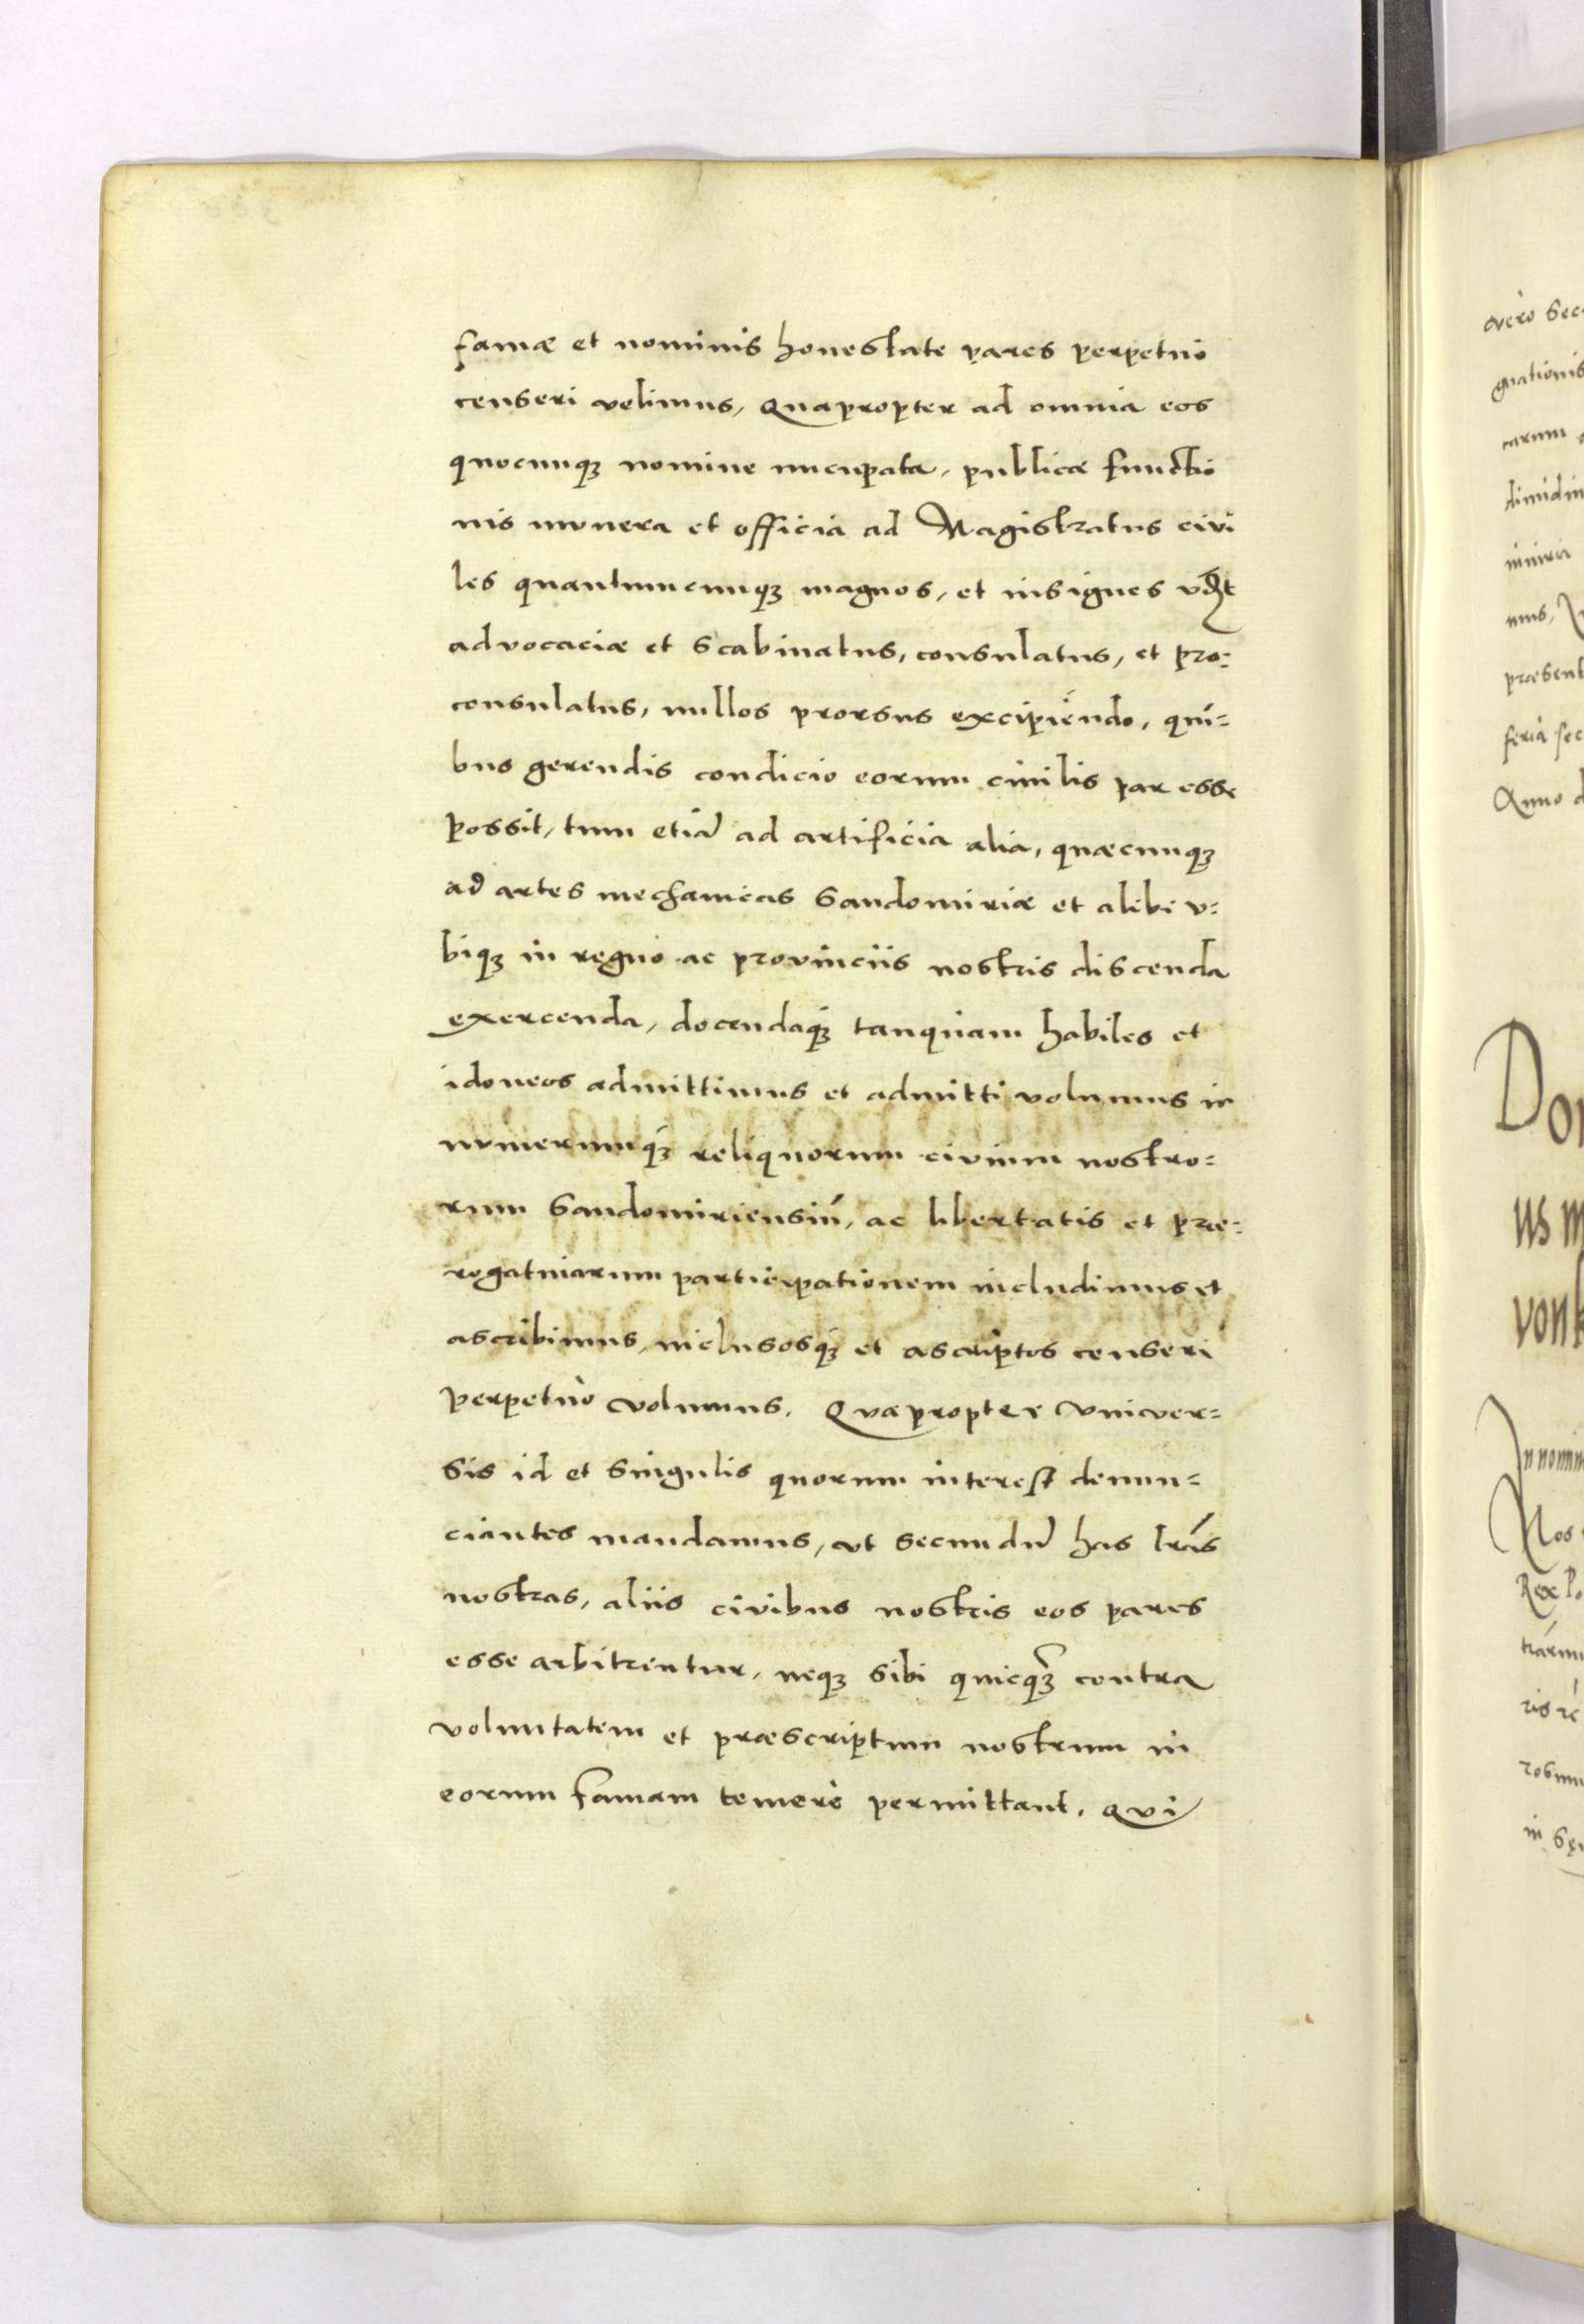 famæ et nominis honestate pares perpetuò
censeri velimus, Quapropter ad omnia eos
quocunqꝫ nomine nucupata, publicæ functio
nis munera et officia ad Magistratus civi
les quantumcunqꝫ magnos, et insignes
advocaciæ et Scabinatus, consulatus, et pro:
consulatus, nullos prorsus excipiendo, qui=
bus gerendis condicio eorum civilis par esse
possit, tum etiā ad artificia alia, quæcunqꝫ
ad artes mechanicas Sandomiriæ et alibi v:
biqꝫ in regno ac provinciis nostris discenda
exercenda, docendaqꝫ tanquam habiles et
idoneos admittimus et admitti volumus in
numerumqꝫ reliquorum civium nostro=
rum Sandomiriensiū, ac libertatis et præ:
rogativarum participationem includimus et
ascribimus, inclusosqꝫ et ascriptos censeri
perpetuò volumus. Quapropter vniver=
sis id et singulis quorum interest denun=
ciantes mandamus, vt secundū has lrás
nostras, aliis civibus nostris eos pares
esse arbitrentur, neqꝫ sibi quicqꝫ̄ contra
voluntatem et præscriptum nostrum in
eorum famam temerè permittant. Qvi
vèro Sec
gnationis
carum
dimidiu
iniuria
mus,
præsent
feria sec
Anno d
Don
us m
vonk
In nomin
Nos
Rex Po
tiárum
ris